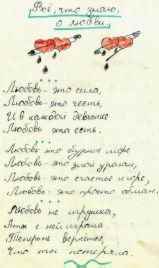 Всё, что знаю,
о любви.
Любовь - это сила,
Любовь - это честь,
И в каждой девчонке
Любовь эта есть.
Любовь это бурное море
Любовь - это злой дурман,
Любовь - это счастье и горе,
Любовь - это просто обман.
Любовь не игрушка,
Аня с ней играла
Теперь
Что ты потеряла.